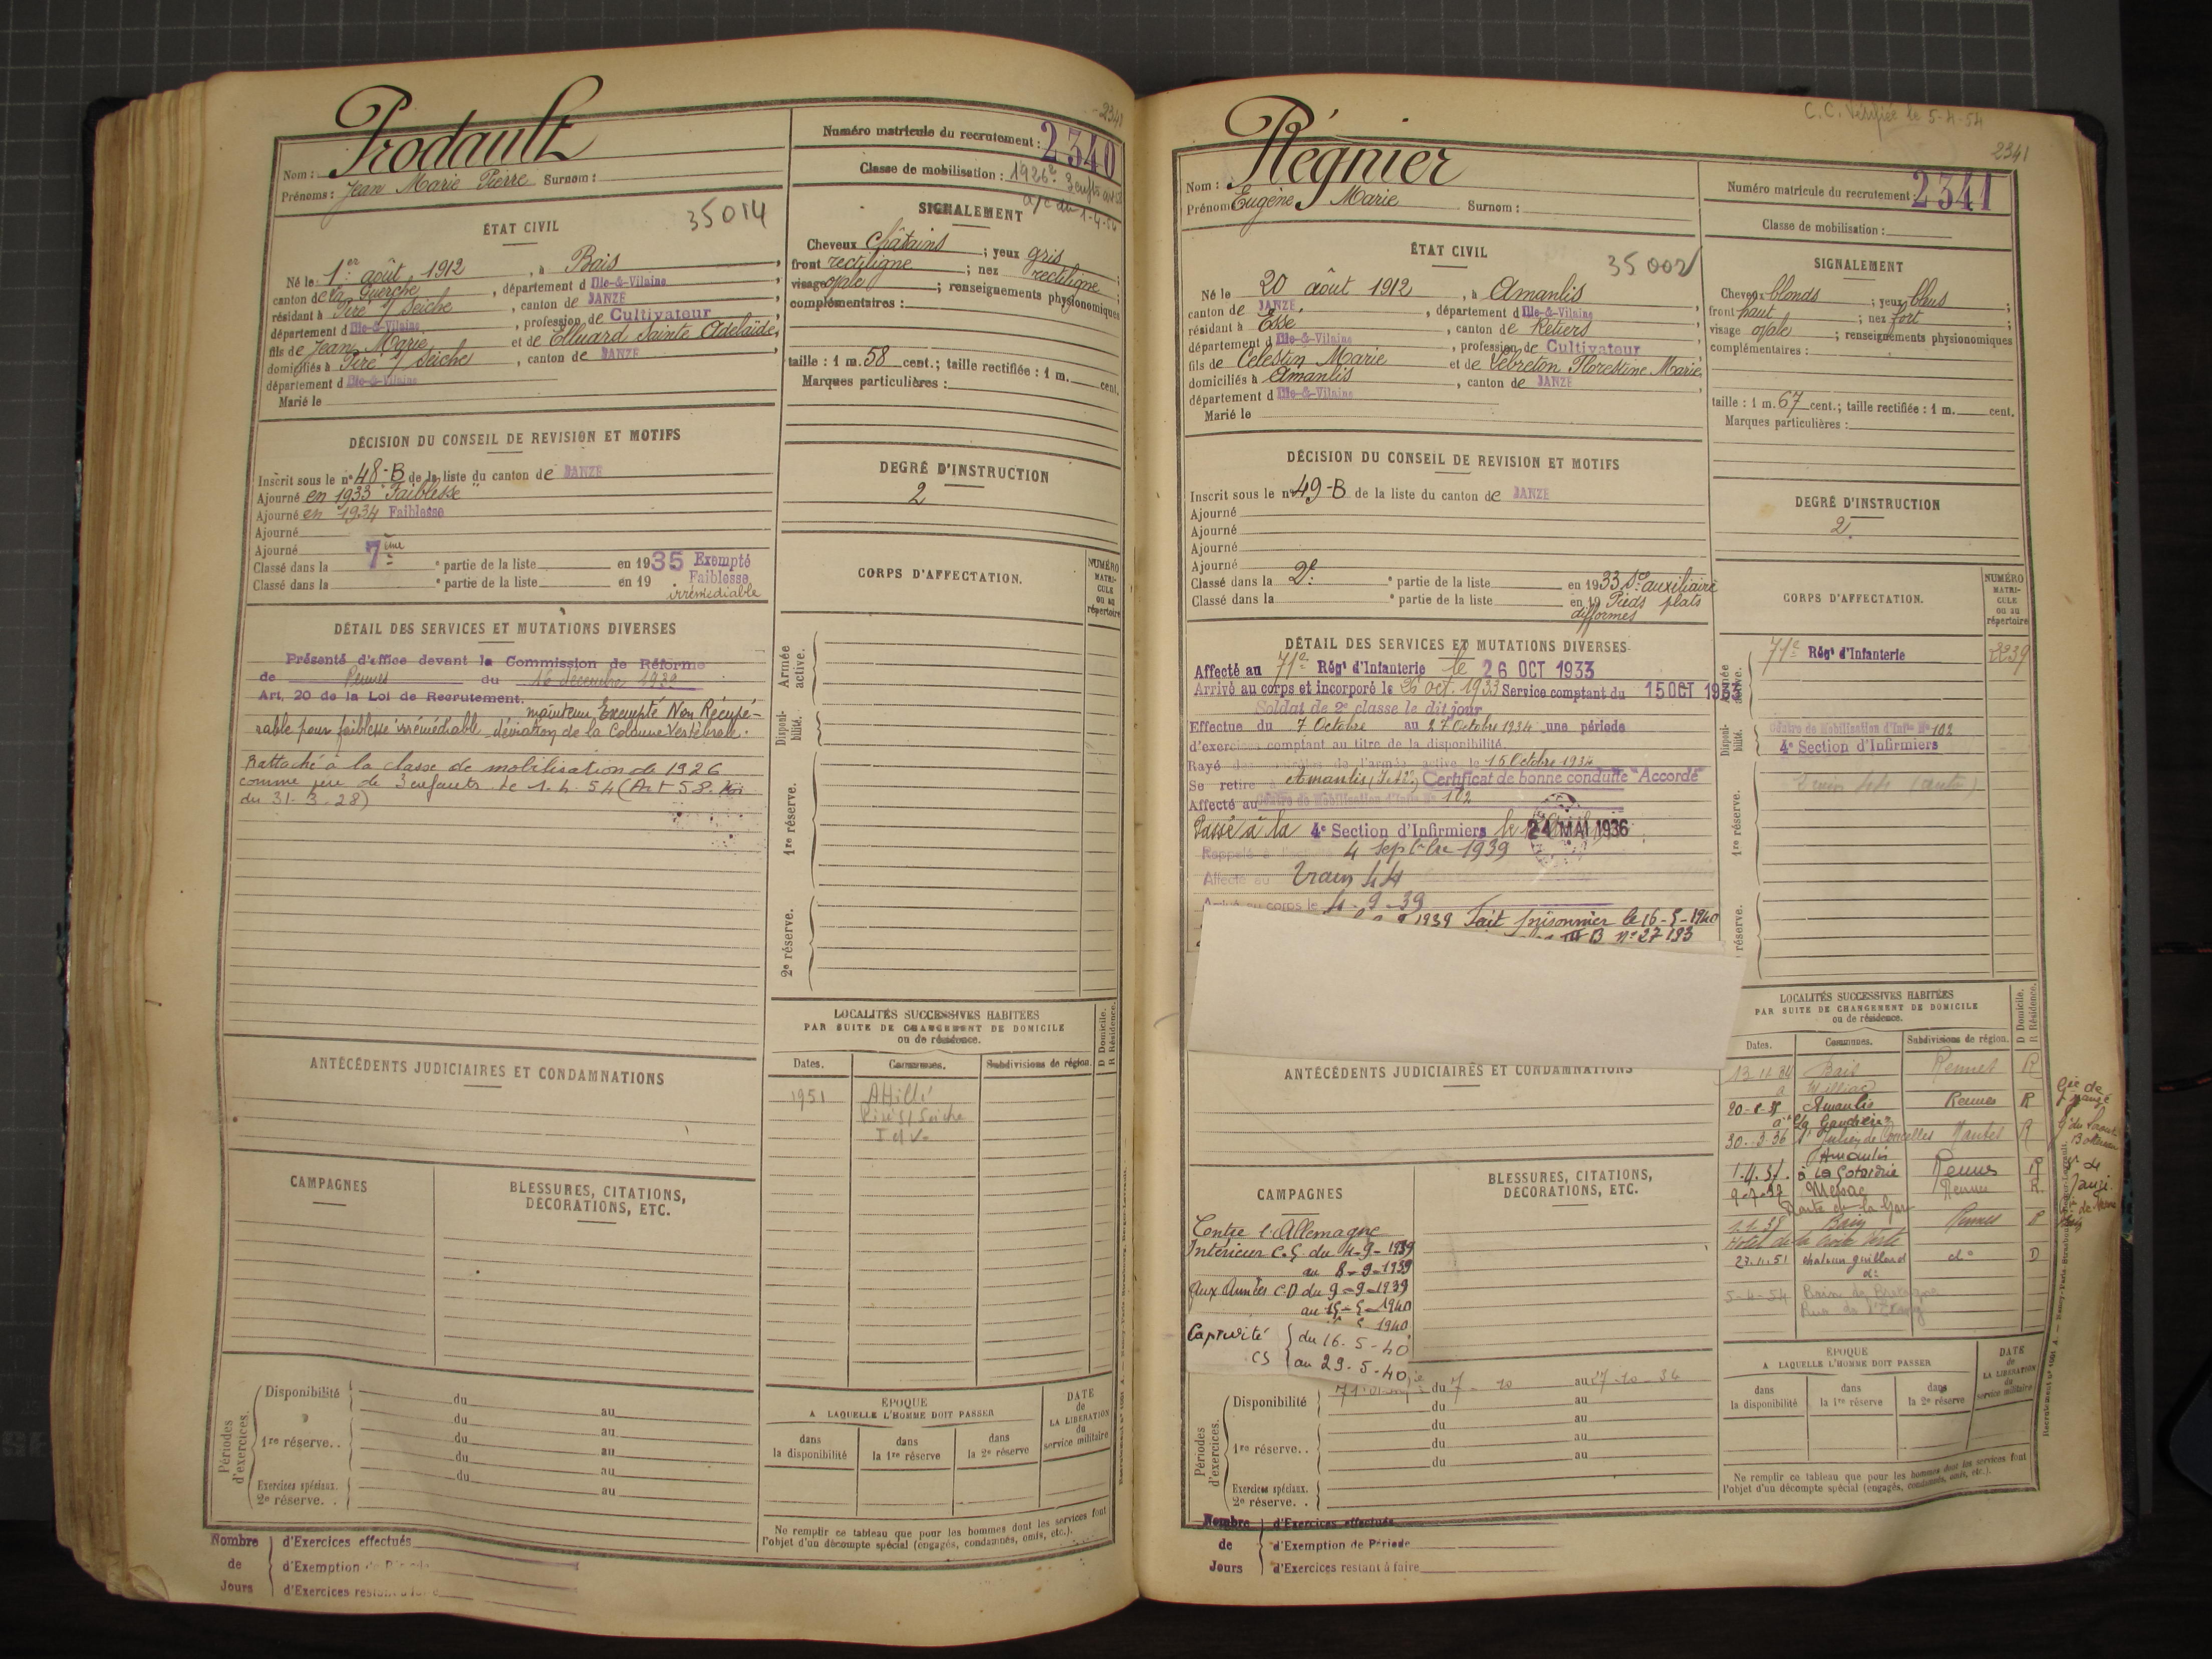 2341
Prodault
Nom :
Prénoms : Jean Marie Pierre Surnom :
Numéro matricule du recrutement : 2340
Classe de mobilisation : 1926
a/c du 1-4-54
35014
ÉTAT CIVIL
Né le 1er août 1912, à Bais,
canton de La Guerche, département d Ille-&-Vilaine,
résidant à Piré s/ Seiche, canton de JANZÉ,
département d Ille-&-Vilaine, profession de Cultivateur,
fils de Jean Marie et de Elluard Sainte Adelaïde,
domiciliés à Piré s/ Seiche, canton de JANZÉ
département d Ille-&-Vilaine
Marié le
SIGNALEMENT
Cheveux châtains ; yeux gris ;
front rectiligne ; nez rectiligne ;
visage ovale ; renseignements physionomiques
complémentaires :
taille : 1 m. 58 cent.; taille rectifiée : 1 m. cent.
Marques particulières :
DÉCISION DU CONSEIL DE REVISION ET MOTIFS
Inscrit sous le n° 48-B de la liste du canton de JANZÉ
Ajourné en 1933 "Faiblesse"
Ajourné en 1934 Faiblesse
Ajourné
Ajourné
Classé dans la 7ème partie de la liste en 1935 Exempté
Classé dans la e partie de la liste en 19 Faiblesse
irrémédiable
DEGRÉ D'INSTRUCTION
2
DÉTAIL DES SERVICES ET MUTATIONS DIVERSES
Présenté d'office devant la Commission de Réforme
de Rennes du 16 décembre 1939
Art. 20 de la Loi de Recrutement.
maintenu Exempté Non Récupé-
rable pour faiblesse irrémédiable déviation de la Colonne Vertébrale.
Rattaché à la classe de mobilisation de 1926
comme père de 3 enfants le 1.4.54 (Art 58. loi
du 31-3.28)
CORPS D'AFFECTATION.
NUMÉRO MATRI- CULE ou au répertoire
Armée active.
Disponi- bilité.
1re réserve.
2e réserve.
ANTÉCÉDENTS JUDICIAIRES ET CONDAMNATIONS
LOCALITÉS SUCCESSIVES HABITÉES
PAR SUITE DE CHANGEMENT DE DOMICILE
ou de résidence.
D Domicile.
R Résidence.
Dates. Communes. Subdivisions de région.
1951
Piré s/ Seiche
I et V.
CAMPAGNES
BLESSURES, CITATIONS,
DÉCORATIONS, ETC.
Périodes d'exercices.
Disponibilité du au
du au
1re réserve.. du au
du au
Exercices spéciaux. du au
2e réserve. .
ÉPOQUE
A LAQUELLE L'HOMME DOIT PASSER
dans la disponibilité
dans la 1re réserve
dans la 2e réserve
DATE de LA LIBÉRATION du service militaire
Ne remplir ce tableau que pour les hommes dont les services font
l'objet d'un décompte spécial (engagés, condamnés, omis, etc.).
Nombre d'Exercices effectués
de d'Exemption
Jours d'Exercices
C.C. Vérifiée le 5-4-54
2341
Régnier
Nom :
Prénom Eugène Marie Surnom :
Numéro matricule du recrutement : 2341
Classe de mobilisation :
ÉTAT CIVIL
35002
Né le 20 août 1912, à Amanlis
canton de JANZÉ, département d Ille-&-Vilaine,
résidant à Essé, canton de Retiers,
département d Ille-&-Vilaine, profession de Cultivateur
fils de Célestin Marie et de Lebreton Florestine Marie,
domiciliés à Amanlis, canton de JANZÉ,
département d Ille-&-Vilaine
Marié le
SIGNALEMENT
Cheveux blonds ; yeux bleus ;
front haut ; nez fort ;
visage ovale ; renseignements physionomiques
complémentaires :
taille : 1 m. 67 cent.; taille rectifiée : 1 m. cent.
Marques particulières :
DÉCISION DU CONSEIL DE REVISION ET MOTIFS
Inscrit sous le n° 49-B de la liste du canton de JANZÉ
Ajourné
Ajourné
Ajourné
Ajourné
Classé dans la 2e partie de la liste en 1933 Sce auxiliaire
Classé dans la e partie de la liste en 19 Pieds plats
difformes
DEGRÉ D'INSTRUCTION
2
DÉTAIL DES SERVICES ET MUTATIONS DIVERSES
Affecté au 71e Régt d'Infanterie le 26 OCT 1933
Arrivé au corps et incorporé le 26 oct. 1933 Service comptant du 15 OCT 1933
Soldat de 2e classe le dit jour
Effectue du 7 Octobre au 27 Octobre 1934 une période
d'exercices comptant au titre de la disponibilité.
Rayé des contrôles de l'armée active le 15 Octobre 1934
Se retire Amanlis (I. et V.) Certificat de bonne conduite "Accordé"
Affecté au Centre de Mobilisation d'Infie N° 102
Passé à la 4e Section d'Infirmiers le 24 MAI 1936
Rappelé à 4 Septbre 1939
Affecté au Train
Arrivé au corps le 4-9-39
1939 Fait prisonnier le 16-5-1940
III B n° 27193
CORPS D'AFFECTATION.
NUMÉRO MATRI- CULE ou au répertoire
71e Régt d'Infanterie 2239
Centre de Mobilisation d'Infie N° 102
4e Section d'Infirmiers
Disponi- bilité.
1re réserve.
réserve.
ANTÉCÉDENTS JUDICIAIRES ET CONDAMNATIONS
LOCALITÉS SUCCESSIVES HABITÉES
PAR SUITE DE CHANGEMENT DE DOMICILE
ou de résidence.
D Domicile.
R Résidence.
Dates. Communes. Subdivisions de région.
13-11-34 Bais Rennes R
Amanlis Rennes R
30.3.36 St Julien de Concelles Nantes R
Amanlis
1.4.37. à la Rennes R
Messac Rennes R
1.1.38 Bain Rennes
Hotel de la Croix Verte
27.11.51 d° D
5-4-54 Bain de Bretagne
CAMPAGNES
BLESSURES, CITATIONS,
DÉCORATIONS, ETC.
Contre l'Allemagne
Intérieur C.S. du 4-9-1939
au 8-9-1939
Aux Armées C.D du 9-9-1939
au 15-5-1940
1940
Captivité du 16.5-40
CS au 29.5-40
Périodes d'exercices.
Disponibilité du 7-10 au 27-10-34
du au
du au
1re réserve.. du au
du au
Exercices spéciaux.
2e réserve. .
ÉPOQUE
A LAQUELLE L'HOMME DOIT PASSER
dans la disponibilité
dans la 1re réserve
dans la 2e réserve
DATE de LA LIBÉRATION du service militaire
Ne remplir ce tableau que pour les hommes dont les services font
l'objet d'un décompte spécial (engagés, condamnés, omis, etc.).
Nombre d'Exercices effectués
de d'Exemption de Période
Jours d'Exercices restant à faire